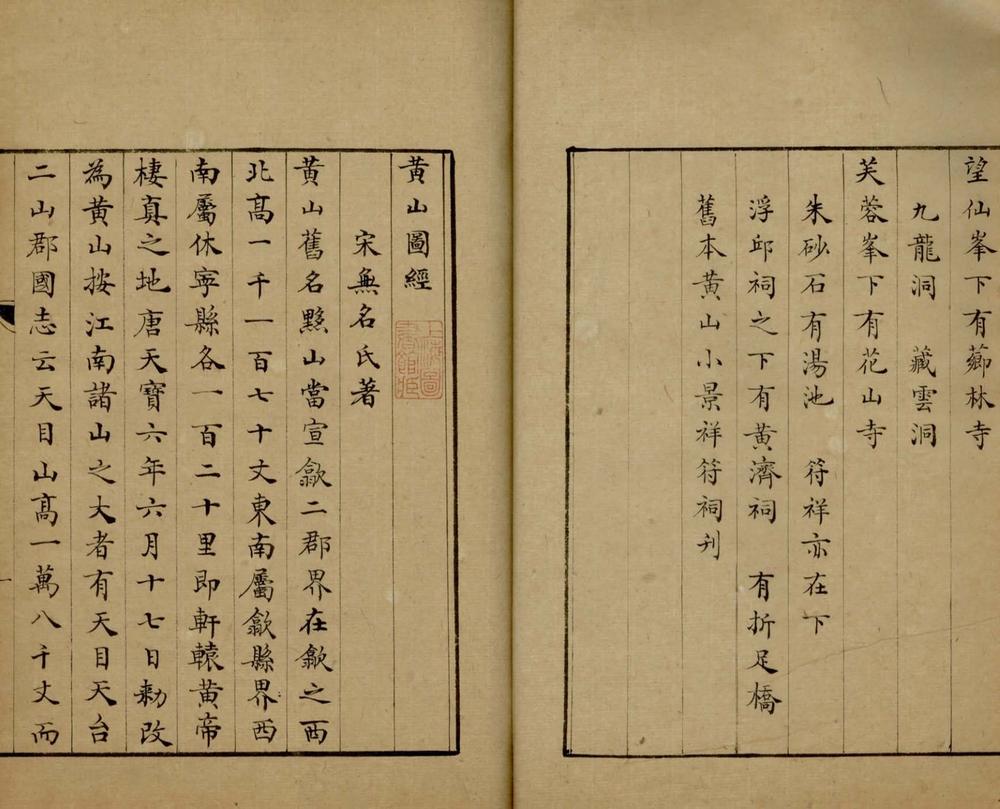 望仙峯下有薌林寺
九龍洞 藏雲洞
芙蓉峯下有花山寺
朱砂石有湯池 符祥亦在下
浮邱祠之下有黄濟祠 有折足橋
舊本黄山小景祥符祠刋
黄山圖經
宋無名氏著
黄山舊名黟山當宣歙二郡界在歙之西
北髙一千一百七十丈東南屬歙縣界西
南屬休寜縣各一百二十里即軒轅黄帝
棲真之地唐天寶六年六月十七日勅改
為黄山按江南諸山之大者有天目天台
二山郡國志云天目山髙一萬八千丈而
上海圖
書館藏